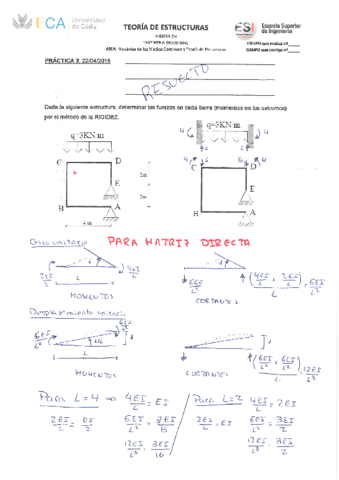 UCA Universidad de Cádiz
TEORÍA DE ESTRUCTURAS
ESI Escuela Superior de Ingeniería
ÁREA: Mecánica de los Medios Continuos y Teoría de Estructuras
GRUPO que evalúa nº
GRUPO que corrige nº
PRÁCTICA 3: 22/04/2015
RESUELTO
Dada la siguiente estructura, determinar las fuerzas de cada barra (momentos en los extremos)
por el método de la RIGIDEZ.
q=3KN/m
q=3KN/m
4 6 6 4
C D
2m
E
2m
B A
4 m
C D
E
B A
Giro unitario PARA MATRIZ DIRECTA
2EI/L 4EI/L
L
MOMENTOS
6EI/L² (4EI/L + 2EI/L)/L = 6EI/L²
CORTANTES
Desplazamiento unitario
6EI/L² 6EI/L²
1
L
MOMENTOS
1
(6EI/L² + 6EI/L²)/L = 12EI/L³
CORTANTES
Para L=4 ⇒ 4EI/L = EI
2EI/L = EI/2 6EI/L² = 3EI/8
12EI/L³ = 3EI/16
Para L=2 4EI/L = 2EI
2EI/L = EI 6EI/L² = 3EI/2
12EI/L³ = 3EI/2